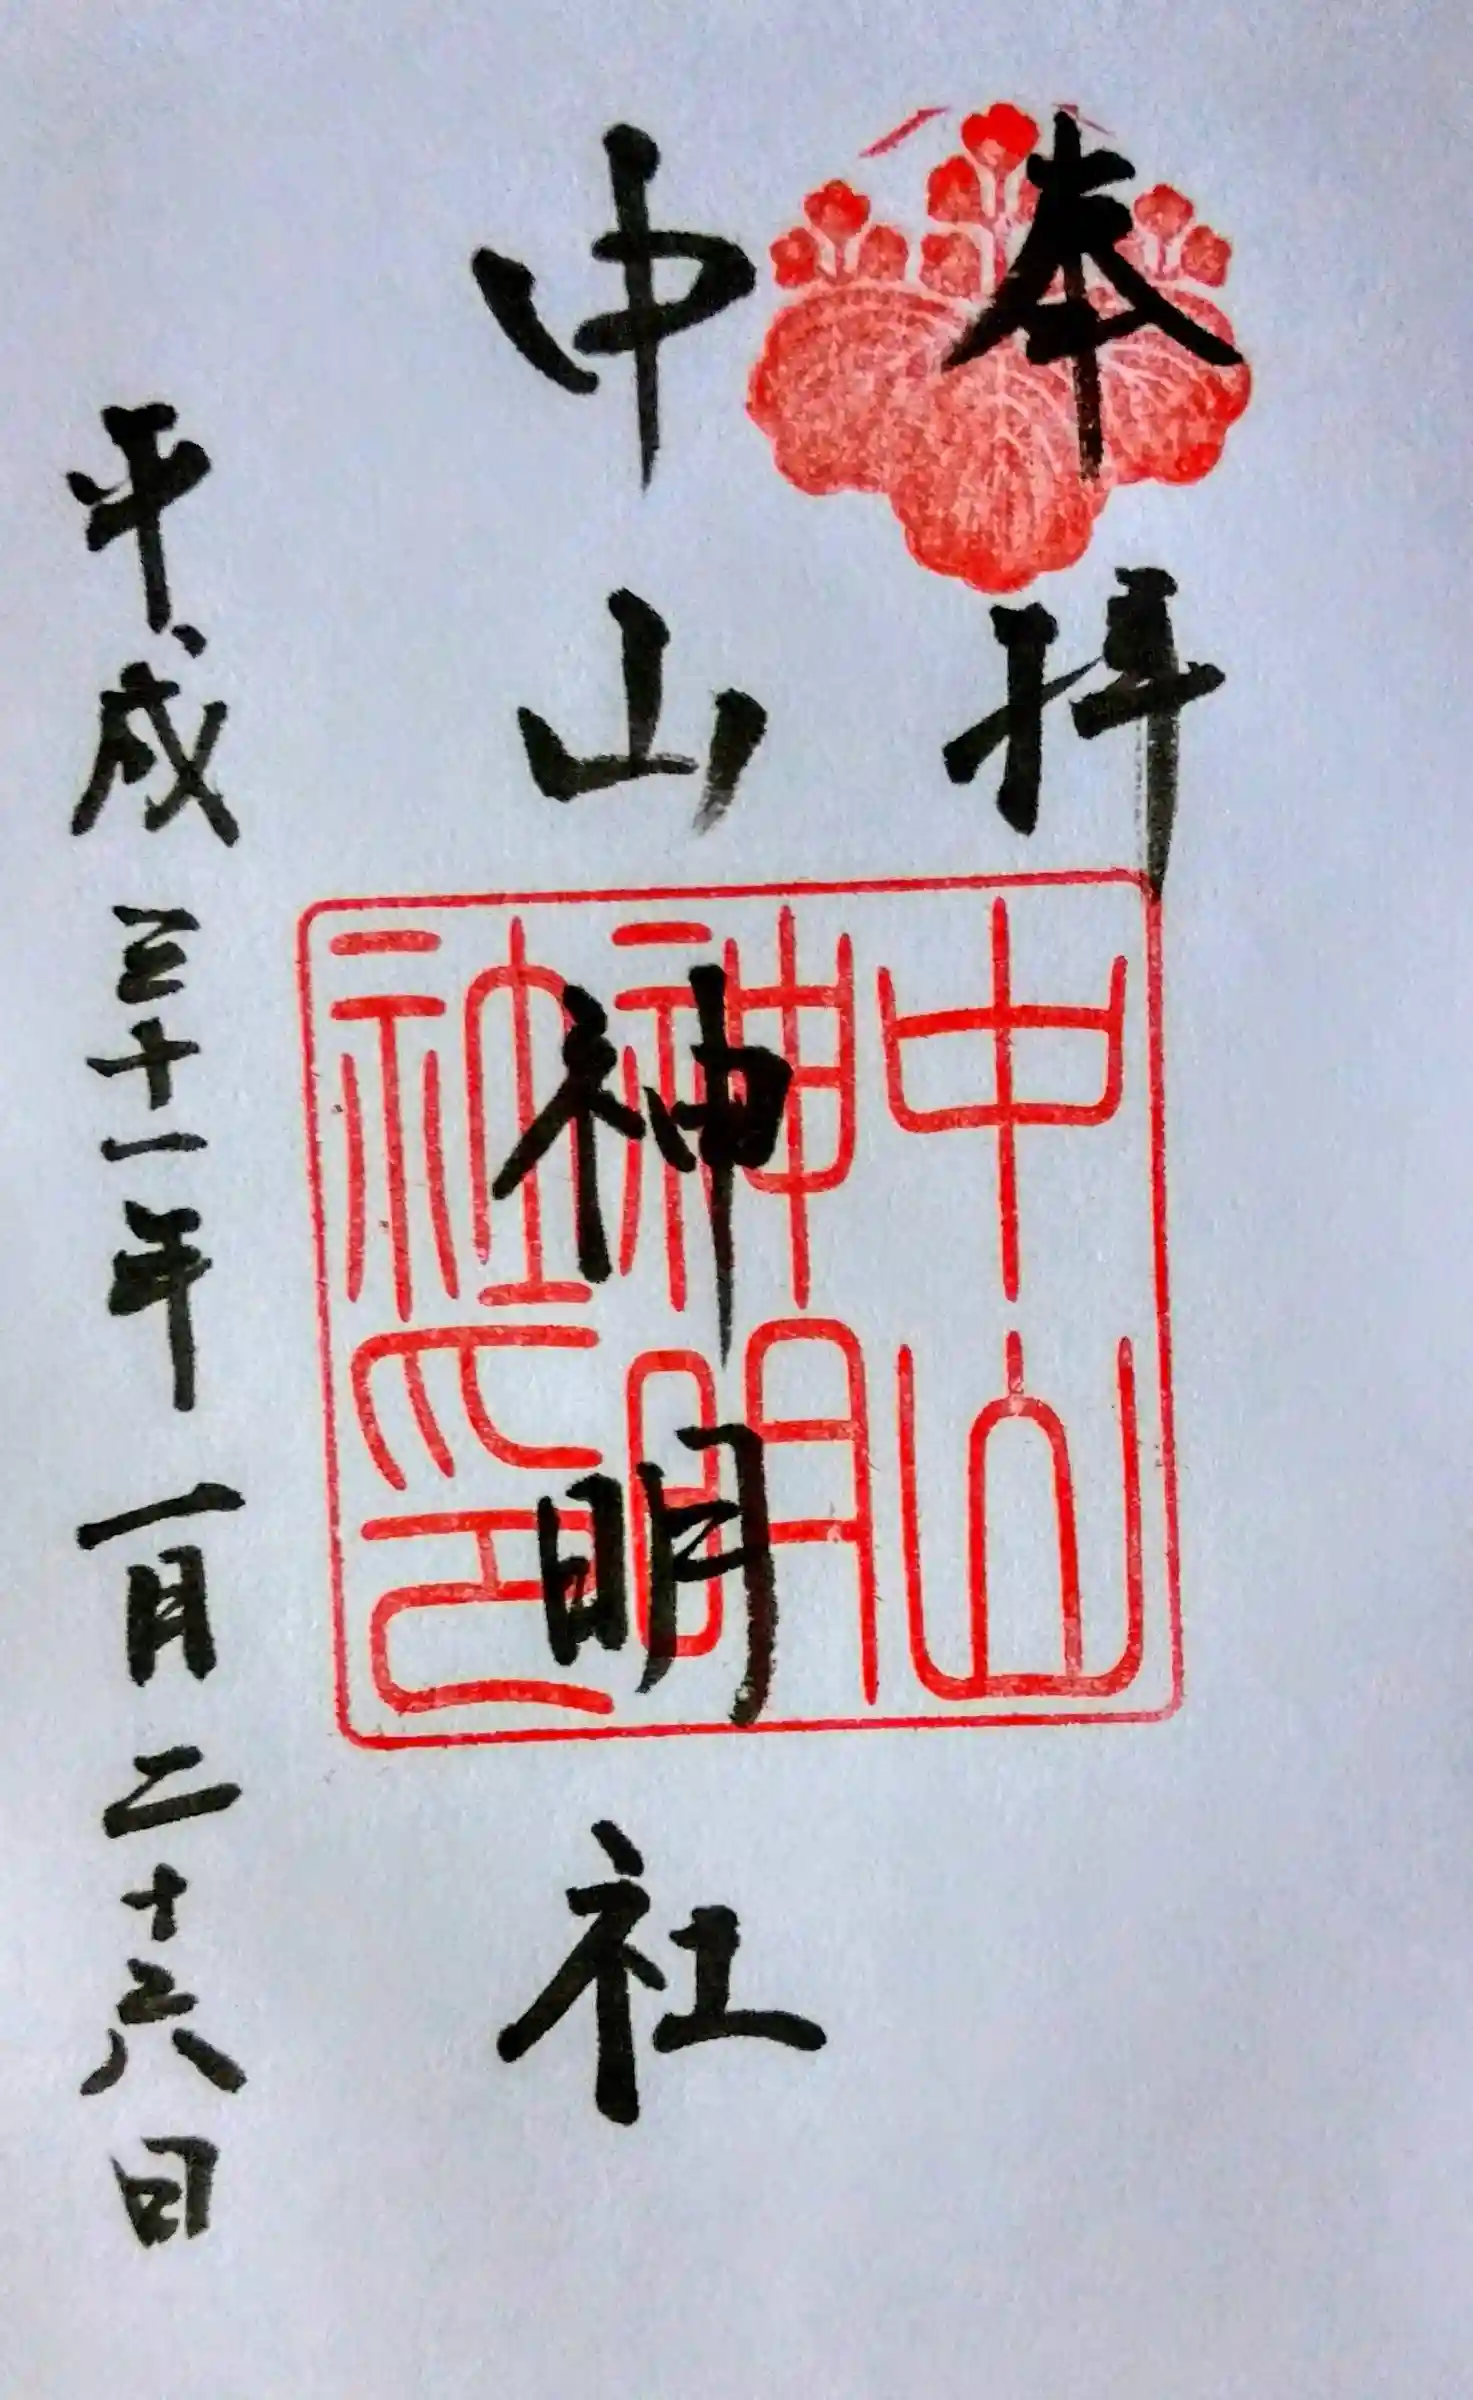 奉拝
中山神明社
中山神明社印
平成三十一年一月二十六日